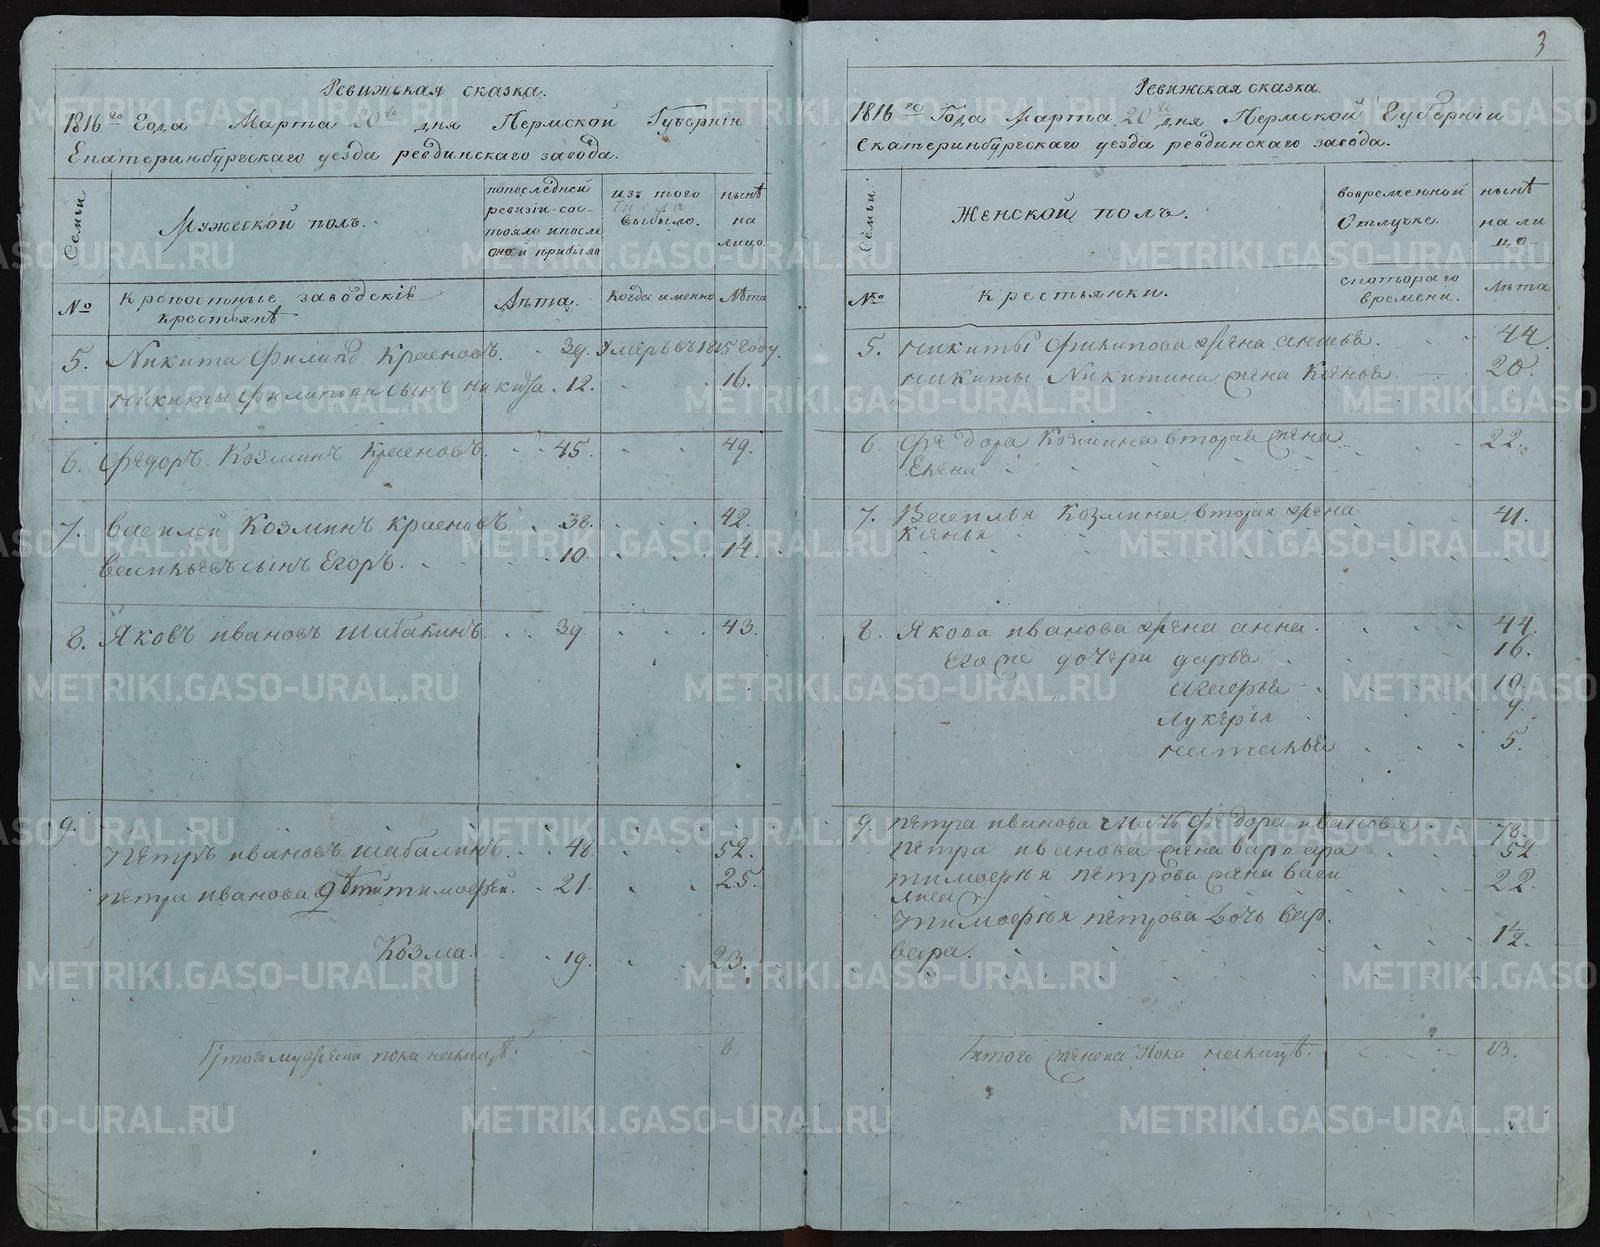 3
Ревижская сказка.
1816го Года Марта 20го дня Пермской Губерніи
Екатеринбургскаго уезда ревдинскаго завода.
Семьи
Мужеской полъ.
попоследней ревизіи состояло ипосле оной прибыло
изъ того числа выбыло.
нынѣ на лицо
№
крепостные заводскіе крестьянѣ
Лѣта.
Когда именно
Лѣта
5. Никита Филипо Красновъ. 39. Умеръ въ 1815 году.
никиты филипова сынъ никита. 12. 16.
6. Федоръ Козминъ Красновъ. 45. 49.
7. Василей Козминъ Красновъ. 38. 42.
васильевъ сынъ Егоръ. 10. 14.
8. Яковъ ивановъ шабалинъ. 39. 43.
9.
Петръ ивановъ шабалинъ. 48. 52.
петра иванова дѣти тимофей. 21. 25.
Козма. 19. 23.
Итого мужеска пола налицѣ. 8.
Ревижская сказка.
1816го Года Марта 20го дня Пермской Губерніи
Екатеринбургскаго уезда ревдинскаго завода.
Семьи.
Женской полъ.
вовременной Отлучке.
нынѣ на лицо
№
крестьянки.
скотораго времени.
Лѣта
5. никиты филипова жена 44.
никиты Никитина жена 20.
6. Федора Козмина вторая жена 22.
Елена
7. Василья Козмина вторая жена 41.
8. Якова иванова жена анна. 44.
Его же дочери дарья 16.
10.
лукерія 9.
наталья 5.
9. петра иванова мать федора иванова 73.
петра иванова жена варвара 52.
тимофея петрова жена васи 22.
лиса
тимофея петрова дочь вар.
вара. 1½.
Итого женска пола налицѣ. 13.
METRIKI.GASO-URAL.RU